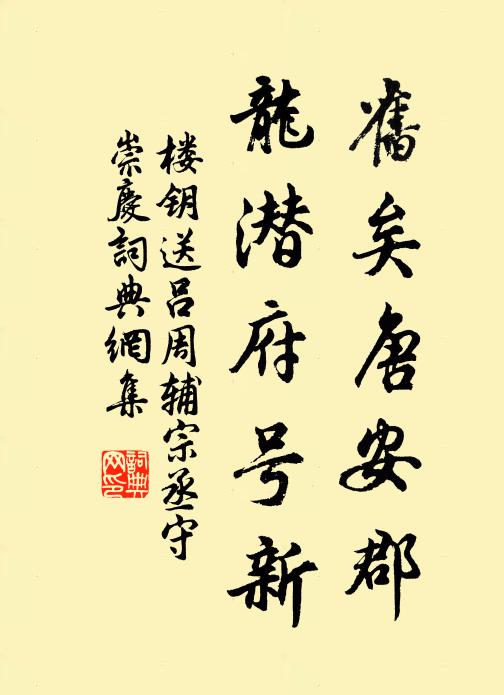 舊矣唐安郡
龍潜府号新
楼钥送吕周辅宗丞守
崇慶詞典網集
詞典网印